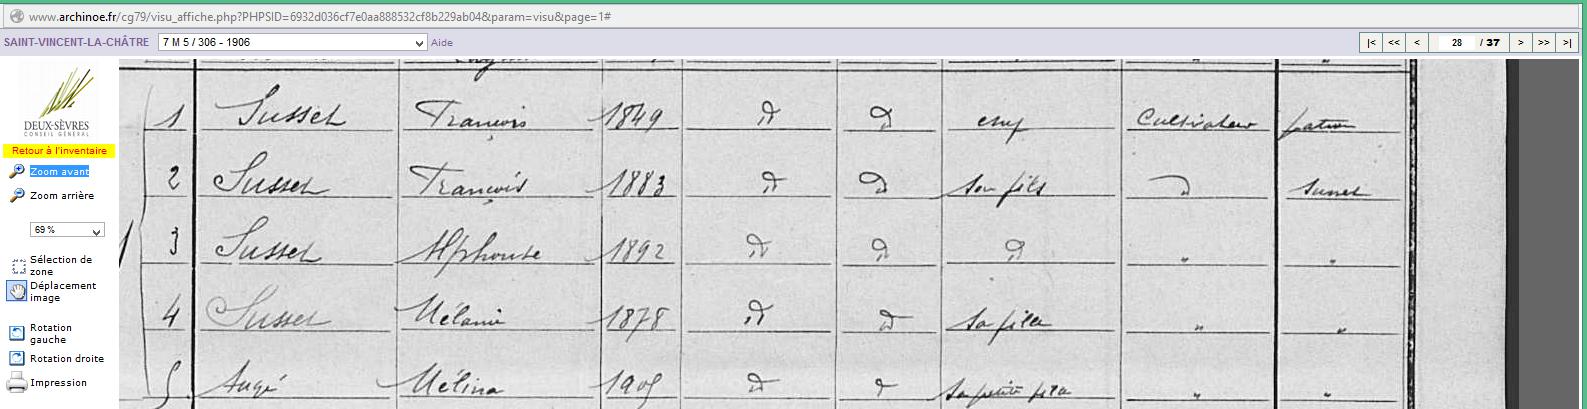 www.archinoe.fr/cg79/visu_affiche.php?PHPSID=6932d036cf7e0aa888532cf8b229ab04&param=visu&page=1#
SAINT-VINCENT-LA-CHÂTRE 7 M 5 / 306 - 1906 Aide |< << < 28 / 37 > >> >|
DEUX-SÈVRES
CONSEIL GÉNÉRAL
Retour à l'inventaire
Zoom avant
Zoom arrière
69 %
Sélection de
zone
Déplacement
image
Rotation
gauche
Rotation droite
Impression
1 Susset François 1849 d d chef Cultivateur patron
2 Susset François 1883 d d son fils d
3 Susset Alphonse 1892 d d d " "
4 Susset Mélanie 1878 d d sa fille " "
5 Augé Mélina 1905 d d sa petite fille " "